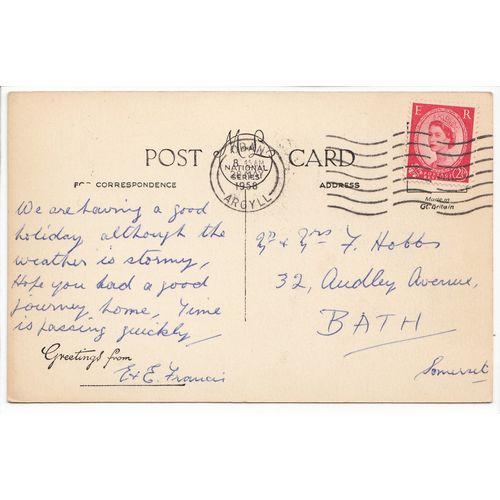 POST CARD
FOR CORRESPONDENCE
ADDRESS
OBAN
8. 45 AM
NATIONAL
1958
ARGYLL
E R
2½D
Made in
Gt. Britain
We are having a good
holiday, although the
weather is stormy,
Hope you had a good
journey home, Time
is passing quickly
Greetings from
E & E. Francis
Mr & Mrs F. Hobbs
32, Audley Avenue,
BATH
Somerset